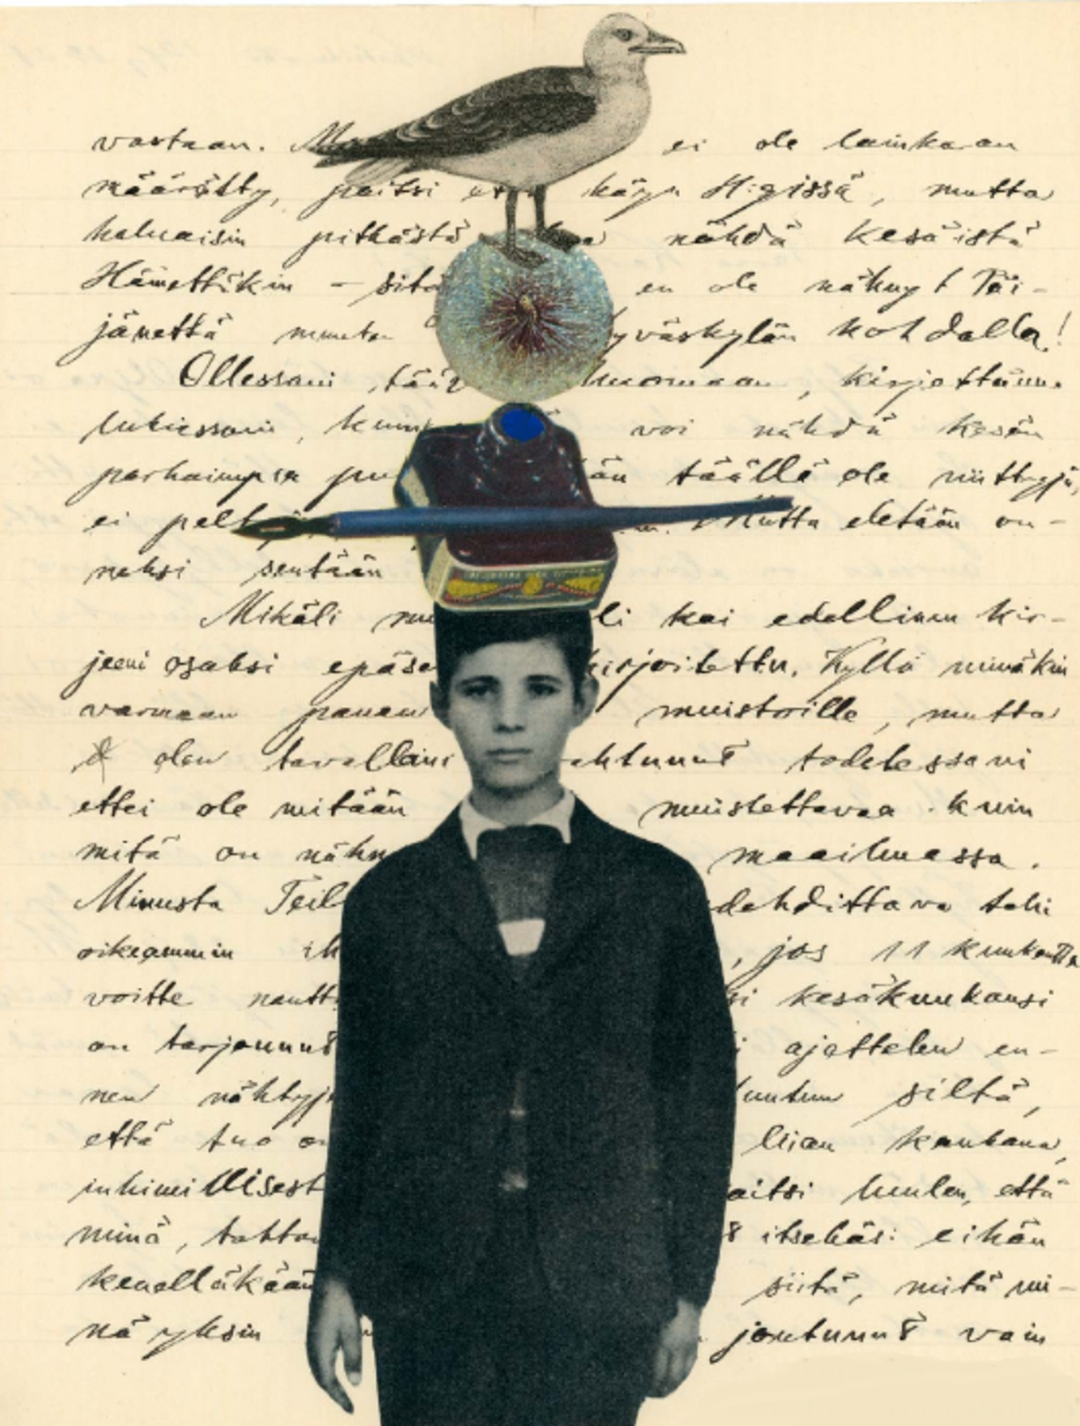 vastaan. ei ole lainkaan
määrätty, paitsi käyn H:gissä, mutta
haluaisin pitkästä nähdä kesäistä
Hämettäkin - sitä en ole nähnyt Päi-
jänettä muuta yväskylän kohdalla!
Ollessani huomaan, kirjettänne
lukiessani, voi nähdä kesän
parhaimpia än täällä ole niittyjä,
ei pelt Mutta eletään on-
neksi sentään
Mikäli li kai edellinen kir-
jeeni osaksi epäse kirjoitettu. Kyllä minäkin
varmaan panen muistoille, mutta
olen tavallani ehtunut todetessani
ettei ole mitään muistettavaa kuin
mitä on nähn maailmassa.
Minusta Teil dehdittava tahi
oikeammin ih , jos 11 kuukautta
voitte nautt si kesäkuukausi
on tarjonnut i ajattelen en-
nen nähtyj tuntuu siltä,
että tuo on liian kaukana,
inhimillisest paitsi luulen, että
minä, tahto t itsekäs: eihän
kenelläkään siitä, mitä mi-
nä yksin joutunut vain